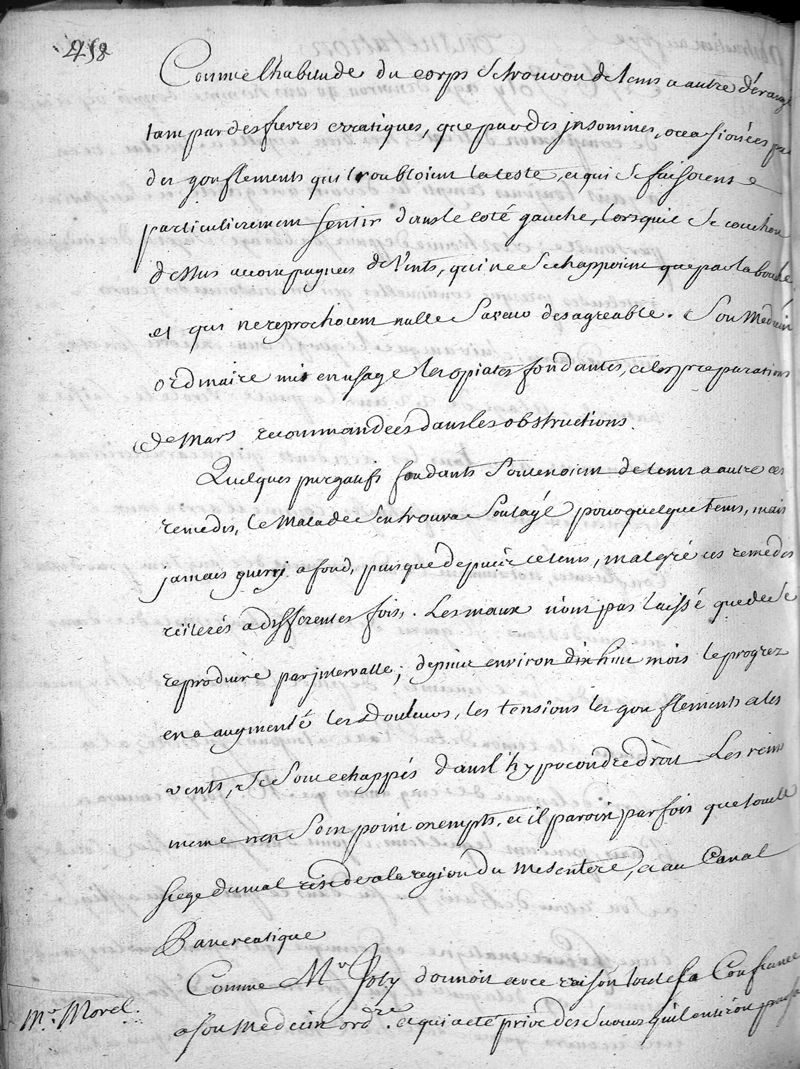 258
Comme l'habitude du corps se trouvoit de tems a autre dérangé
tant par des fievres erratiques, que par des jnsomnies, occasionées par
des gonflements qui troubloient la teste, et qui se faisoient
particulierement sentir dans le coté gauche, lorsqu'il se couchoit
dessus accompagnees de Vents, qui ne sechappoient que par la bouche
et qui ne reprochoient nulle saveur desagreable. Son Medecin
ordinaire mit en usage les opiates fondantes, et les preparations
de Mars recommandées dans les obstructions.
Quelques purgatifs fondants soutenoient de tems a autre ces
remedes, le Malade sen trouva Soulagé pour quelque tems, mais
jamais guery a fond, puisque depuis ce tems, malgré ces remedes
réiterés a differentes fois,. Les maux n'ont pas laissé que de se
reproduire par intervalle; depuis environ dix huit mois le progrez
en a augmenté les douleurs, les tensions les gonflements et les
vents, se sont echappés dans l'hypocondre droit Les reins
meme n'en sont point exempts, et il paroit par fois que tout le
siege du mal reside a la region du Mesentere, et au Canal
Pancreatique
Comme Mr Joly donnoit avec raison toute sa Confiance
Mr Morel.
a son Medecin ordre. et qui a eté privé des secours qu'il en tiroit